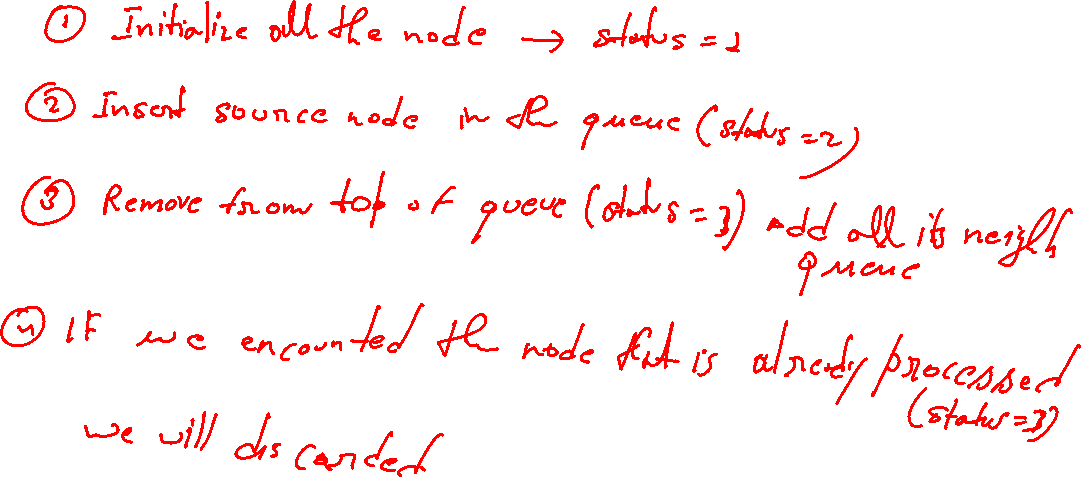 ① Initialize all the node → status = 1
② Insert source node in the queue (status = 2)
③ Remove from top of queue (status = 3) add all its neigh
queue
④ IF we encounted the node that is already processed
(status = 3)
we will discarded